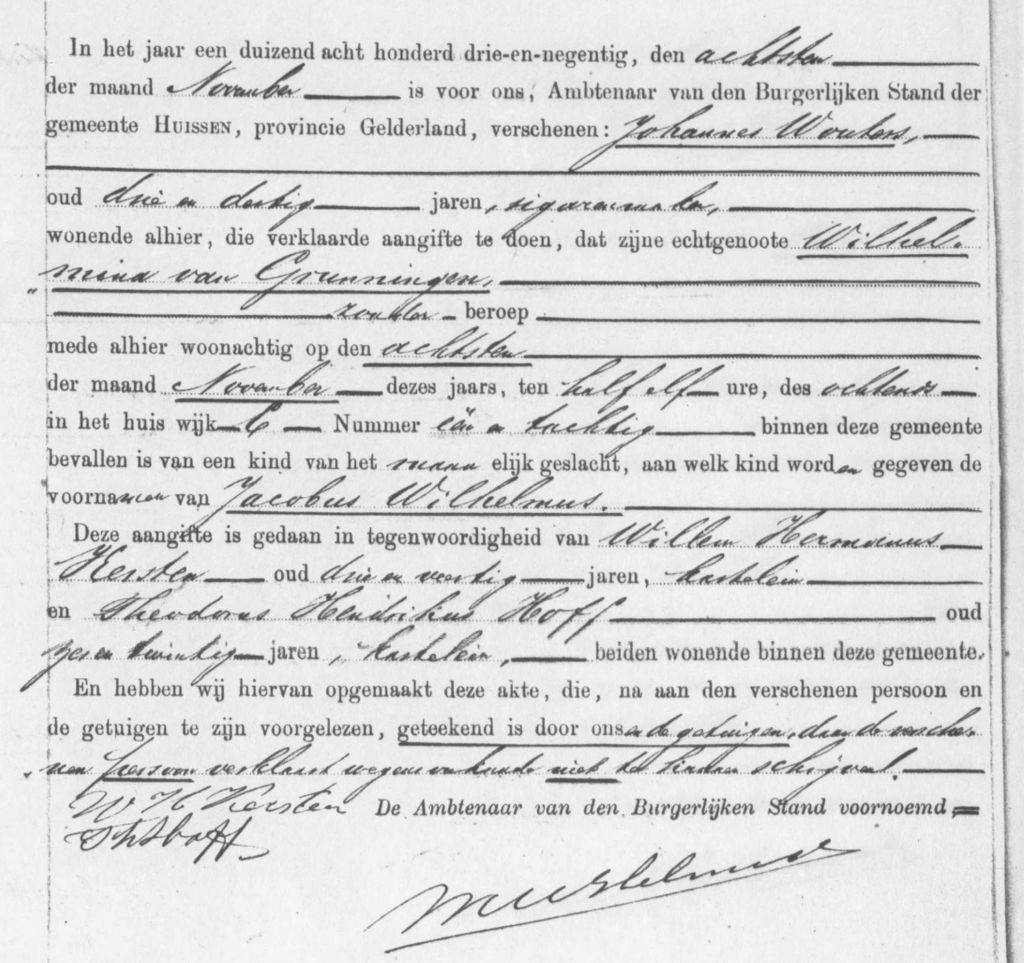 In het jaar een duizend acht honderd drie-en-negentig, den achtsten
der maand November is voor ons, Ambtenaar van den Burgerlijken Stand der
gemeente HUISSEN, provincie Gelderland, verschenen: Johannes Wouters,
oud drie en dertig jaren, sigarenmaker,
wonende alhier, die verklaarde aangifte te doen, dat zijne echtgenoote Wilhel-
mina van Grunningen,
zonder beroep
mede alhier woonachtig op den achtsten
der maand November dezes jaars, ten half elf ure, des ochtends
in het huis wijk C Nummer één en tachtig binnen deze gemeente
bevallen is van een kind van het mannelijk geslacht, aan welk kind worden gegeven de
voornamen van Jacobus Wilhelmus.
Deze aangifte is gedaan in tegenwoordigheid van Willem Hermanus
Kersten oud drie en veertig jaren, kastelein
en Theodorus Hendrikus Hoff oud
zes en twintig jaren, kastelein, beiden wonende binnen deze gemeente.
En hebben wij hiervan opgemaakt deze akte, die, na aan den verschenen persoon en
de getuigen te zijn voorgelezen, geteekend is door ons en de getuigen, daar de versche-
nen persoon verklaart wegens onkunde niet te kunnen schrijven.
W H Kersten De Ambtenaar van den Burgerlijken Stand voornoemd,